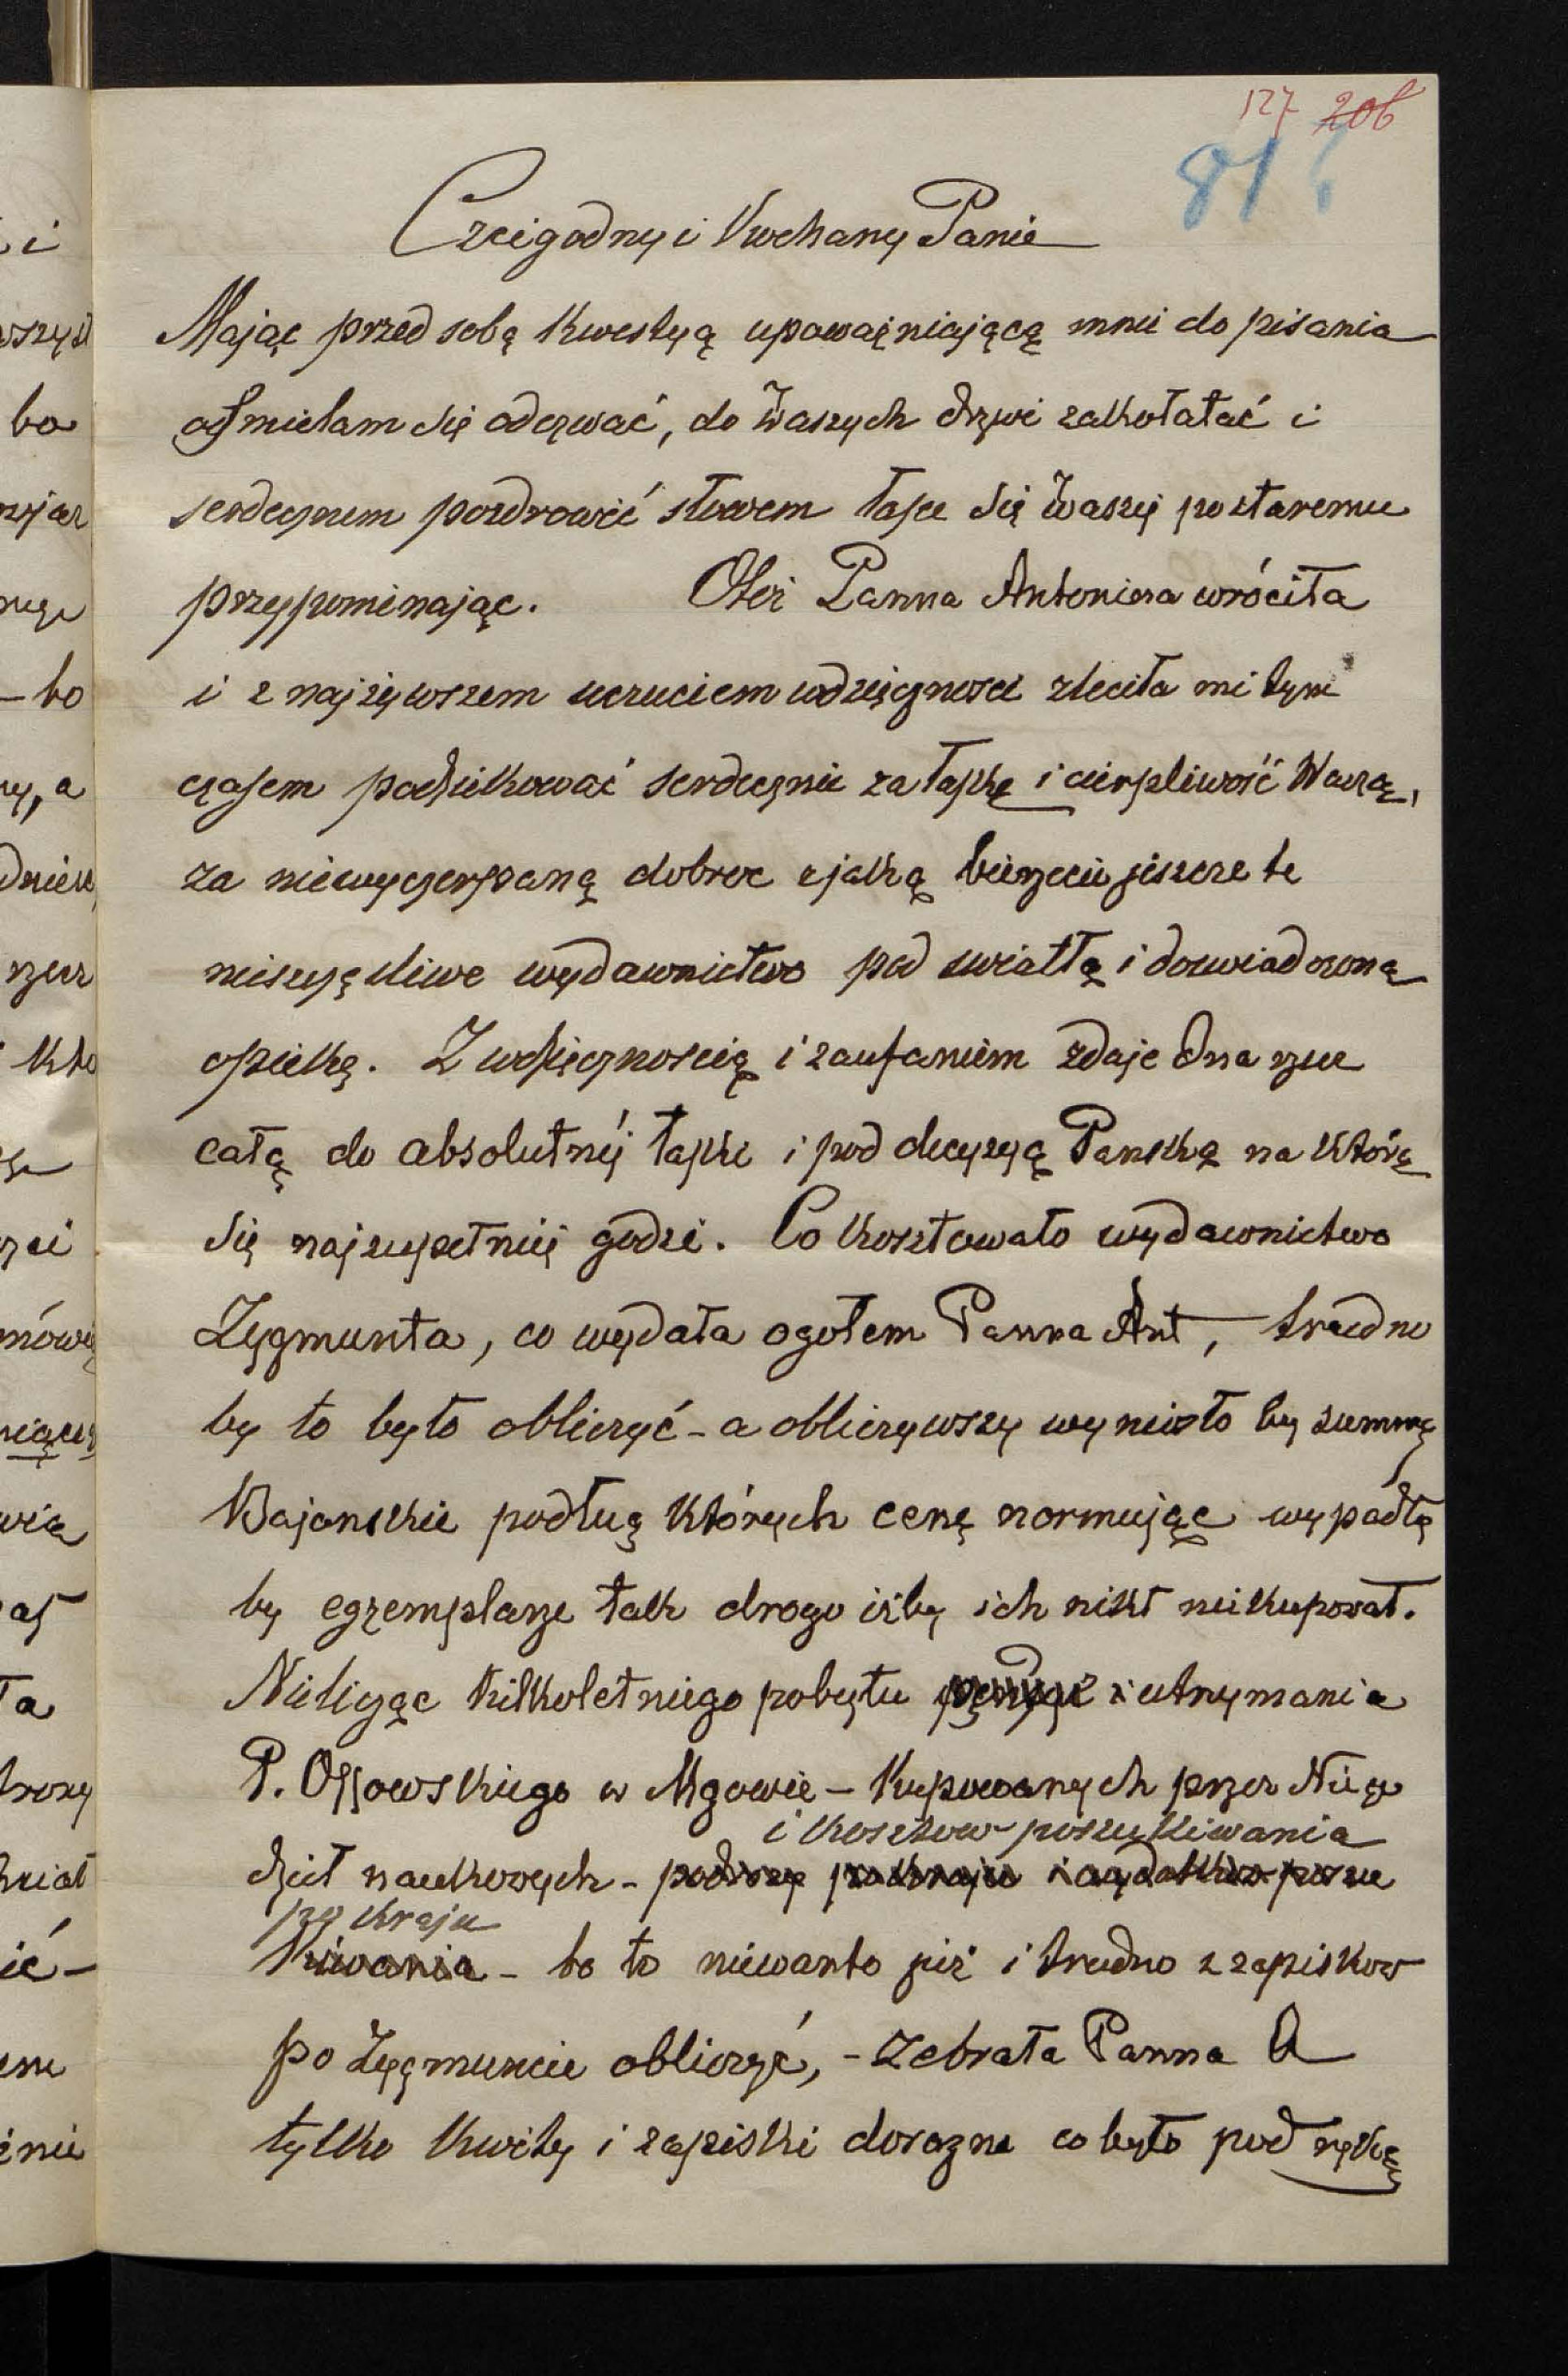 127 206
81
Czcigodny i Kochany Panie
Mając przed sobą kwestyą upoważniającą mnie do pisania
ośmielam się odezwać, do Waszych drzwi zakołatać i
serdecznem pozdrowić słowem łasce się Waszej po staremu
przypominając. Otóż Panna Antonina wróciła
i z najżywszem uczuciem wdzięcznosci zleciła mi tym
czasem podziękować serdecznie za łaskę i cierpliwość Waszą,
za niewyczerpaną dobroc z jaką bierzecie jeszcze te
nieszczęśliwe wydawnictwo pod swiatłą i doswiadczoną
opiekę. Z wdzięcznoscią i zaufaniem zdaje Ona rzecz
całą do absolutnéj łaski i pod decyzyą Panską na którą
się najzupełniej godzi. Co kosztowało wydawnictwo
Zygmunta, co wydała ogołem Panna Ant, trudno
by to było obliczyć - a obliczywszy wyniosło by summę
Bajonskie podług których cenę normując wypadłą
by egzemplarze tak drogo iżby ich nikt niekupował.
Nielicząc kilkoletniego pobytu i utrzymania
P. Ossowskiego w Mgowie - kupowanych przez Niego
i kosztow poszukiwania
dzieł naukowych - podroży po kraju i wydatków poszu
po kraju
kiwania - bo to niewarto już i trudno z zapiskow
po Zygmuncie obliczyć, - zebrała Panna A
tylko kwity i zapiski dorazne co było pod ręką